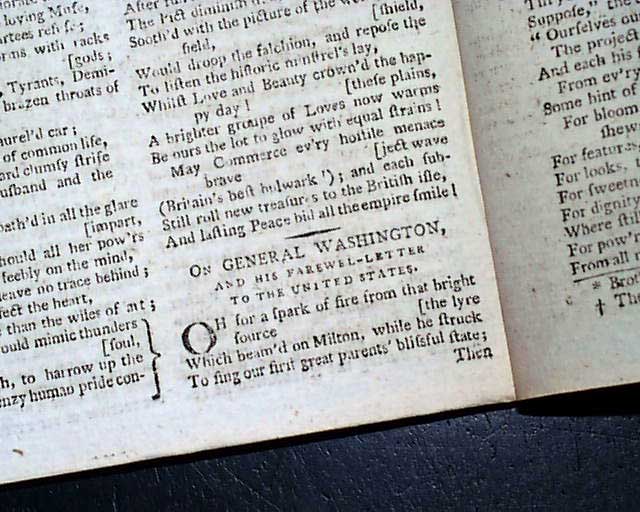 loving Muse,
[gods;
Tyrants, Demi-
brazen throats of
laurel'd car;
of common life,
clumsy ſtrife
and the
bath'd in all the glare
[impart,
ſhould all her pow'rs
feebly on the mind,
leave no trace behind;
the heart,
than the wiles of art;
mimic thunders
[ſoul,
to harrow up the
human pride con-
The leaſt diminiſh
Sooth'd with the picture of the
[ſhield,
field,
Would droop the falchion, and repoſe the
To liſten the hiſtoric minſtrel's lay,
Whilſt Love and Beauty crown'd the hap-
py day!
[theſe plains,
A brighter groupe of Loves now warms
Be ours the lot to glow with equal ſtrains!
May Commerce ev'ry hoſtile menace
brave
[ject wave
(Britain's beſt bulwark!); and each ſub-
Still roll new treaſures to the Britiſh iſle,
And laſting Peace bid all the empire ſmile!
ON GENERAL WASHINGTON,
AND HIS FAREWEL-LETTER
TO THE UNITED STATES.
OH for a ſpark of fire from that bright
ſource
[the lyre
Which beam'd on Milton, while he ſtruck
To ſing our firſt great parents' bliſsful ſtate;
Then
Suppoſe,
"Ourſelves
The project
And each his
From ev'ry
Some hint of
For bloom
For
For looks,
For
For dignity
Where
For pow'r
From all
*
† Th